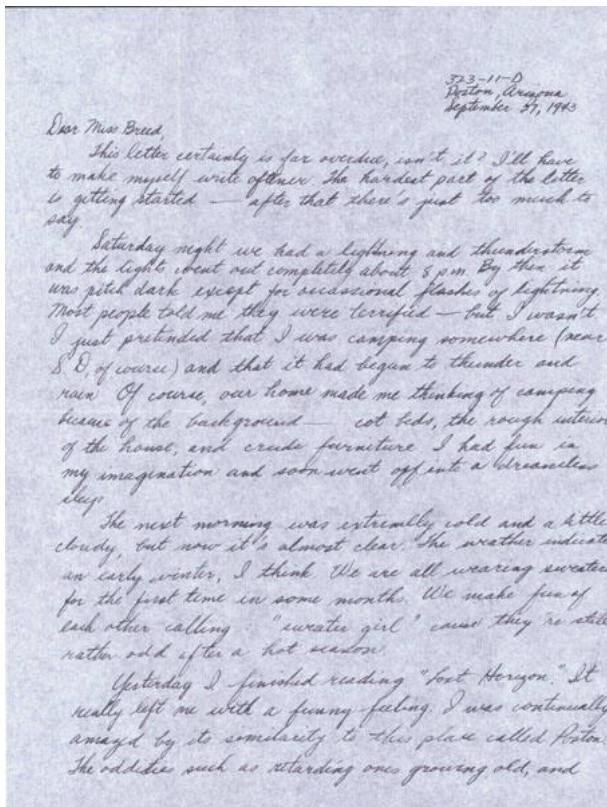 323-11-D
Poston, Arizona
September 27, 1943
Dear Miss Breed,
This letter certainly is far overdue, isn't it? I'll have
to make myself write oftener. The hardest part of the letter
is getting started — after that there's just too much to
say.
Saturday night we had a lightning and thunderstorm
and the lights went out completely about 8 p.m. By then it
was pitch dark except for occassional flashes of lightning.
Most people told me they were terrified — but I wasn't.
I just pretended that I was camping somewhere (near
S.D. of course) and that it had begun to thunder and
rain. Of course, our home made me thinking of camping
because of the background — cot beds, the rough interior
of the house, and crude furniture. I had fun in
my imagination and soon went off into a dreamless
sleep.
The next morning was extremelly cold and a little
cloudy, but now it's almost clear. The weather indicate
an early winter, I think. We are all wearing sweater
for the first time in some months. We make fun of
each other calling "sweater girl" cause they're still
rather odd after a hot season.
Yesterday I finished reading "Lost Horizon." It
really left me with a funny feeling. I was continually
amazed by its similarity to this place called Poston.
The oddities such as retarding ones growing old, and